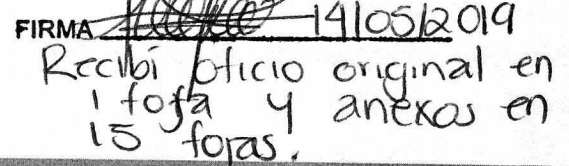 FIRMA 14/05/2019
Recibí oficio original en
1 foja y anexos en
15 fojas.